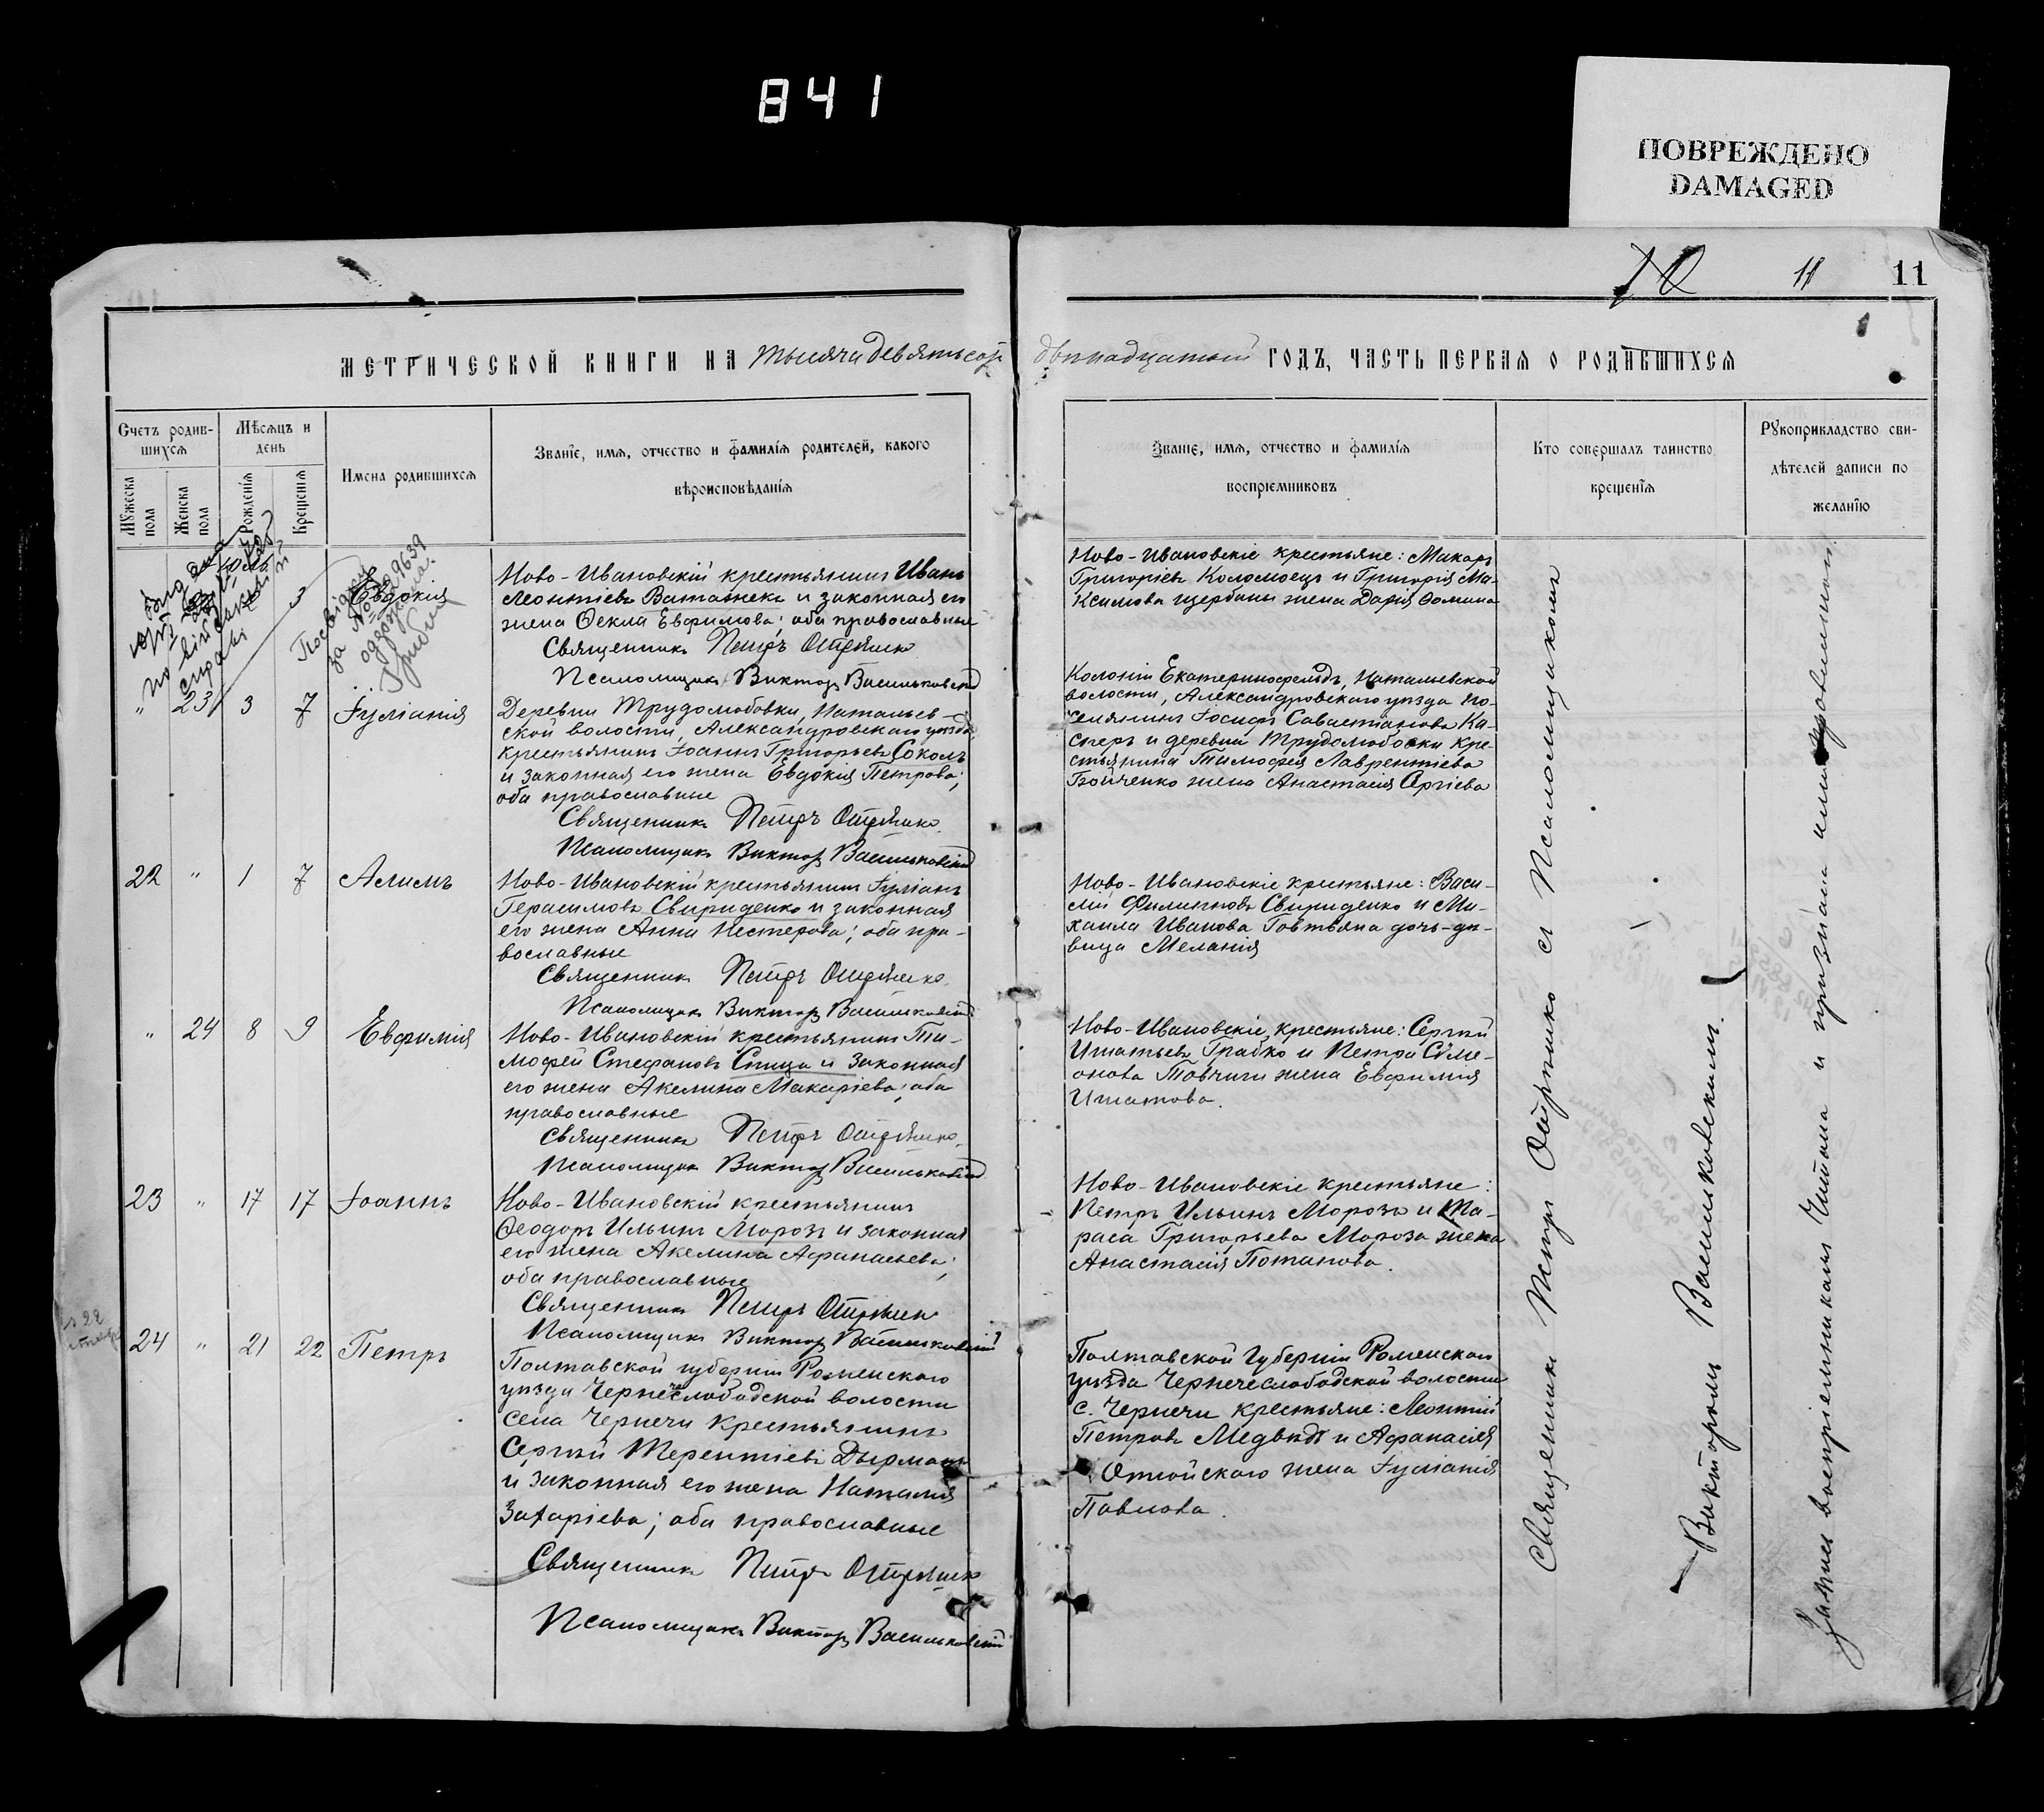 841
ПОВРЕЖДЕНО
DAMAGED
10 11 11
МЕТРИЧЕСКОЙ КНИГИ НА тысяча девятьсот двѣнадцатый ГОДЪ, ЧАСТЬ ПЕРВАЯ О РОДИВШИХСЯ
Счетъ родив-
шихся
Мѣсяцъ и
день
Мужеска пола
Женска пола
Рожденія
Крещенія
Имена родившихся
Званіе, имя, отчество и фамилія родителей, какого
вѣроисповѣданія
Званіе, имя, отчество и фамилія
воспріемниковъ
Кто совершалъ таинство
крещенія
Рукоприкладство сви-
дѣтелей записи по
желанію
3 Евдокія
Посвідку
за № 029639
одержала:
Грибин
Ново-Ивановскій крестьянинъ Иванъ
Леонтіевъ Ватажекъ и законная его
жена Ѳекла Евфимова; оба православные
Священникъ Петръ Отрѣшко
Псаломщикъ Викторъ Васильковскій
Ново-Ивановскіе крестьяне: Макаръ
Григоріевъ Коломоецъ и Григорія Ма-
ксимова Щербины жена Дарія Ѳомина
" 23 3 7 Іуліанія
Деревни Трудолюбовки, Натальев-
ской волости, Александровскаго уѣзда
крестьянинъ Іоаннъ Григорьевъ Соколъ
и законная его жена Евдокія Петрова;
оба православные
Священникъ Петръ Отрѣшко
Псаломщикъ Викторъ Васильковскій
Колоніи Екатеринофельдъ, Натальевской
волости, Александровскаго уѣзда по-
селянинъ Іосифъ Савастіановъ Ка-
сперъ и деревни Трудолюбовки кре-
стьянина Тимофея Лаврентіева
Бойченко жена Анастасія Сергіева
22 " 1 7 Алимъ
Ново-Ивановскій крестьянинъ Іуліанъ
Герасимовъ Свириденко и законная
его жена Анна Нестерова; оба пра-
вославные
Священникъ Петръ Отрѣшко
Псаломщикъ Викторъ Васильковскій
Ново-Ивановскіе крестьяне: Васи-
лій Филипповъ Свириденко и Ми-
хаила Иванова Говтвяна дочь-дѣ-
вица Меланія
" 24 8 9 Евфимія
Ново-Ивановскій крестьянинъ Ти-
мофей Стефановъ Спица и законная
его жена Акелина Макаріева; оба
православные
Священникъ Петръ Отрѣшко
Псаломщикъ Викторъ Васильковскій
Ново-Ивановскіе крестьяне: Сергѣй
Игнатьевъ Грабко и Петра Симе-
онова Товчиги жена Евфимія
Игнатова.
23 " 17 17 Іоаннъ
Ново-Ивановскій крестьянинъ
Ѳеодоръ Ильинъ Морозъ и законная
его жена Акелина Афанасьева;
оба православные
Священникъ Петръ Отрѣшко
Псаломщикъ Викторъ Васильковскій
Ново-Ивановскіе крестьяне:
Петръ Ильинъ Морозъ и Та-
раса Григорьева Мороза жена
Анастасія Потапова.
24 " 21 22 Петръ
Полтавской губерніи Роменскаго
уѣзда Чернечеслободской волости
села Чернечи крестьянинъ
Сергѣй Терентіевъ Дырманъ
и законная его жена Наталія
Захаріева; оба православные
Священникъ Петръ Отрѣшко
Псаломщикъ Викторъ Васильковскій
Полтавской губерніи Роменскаго
уѣзда Чернечеслободской волости
с. Чернечи крестьяне: Леонтій
Петровъ Медвѣдь и Афанасія
жена Іуліанія
Павлова.
Священникъ Петръ Отрѣшко съ Псаломщикомъ
Викторомъ Васильковскимъ.
Запись воспріемникамъ читана и признана ими правильной.